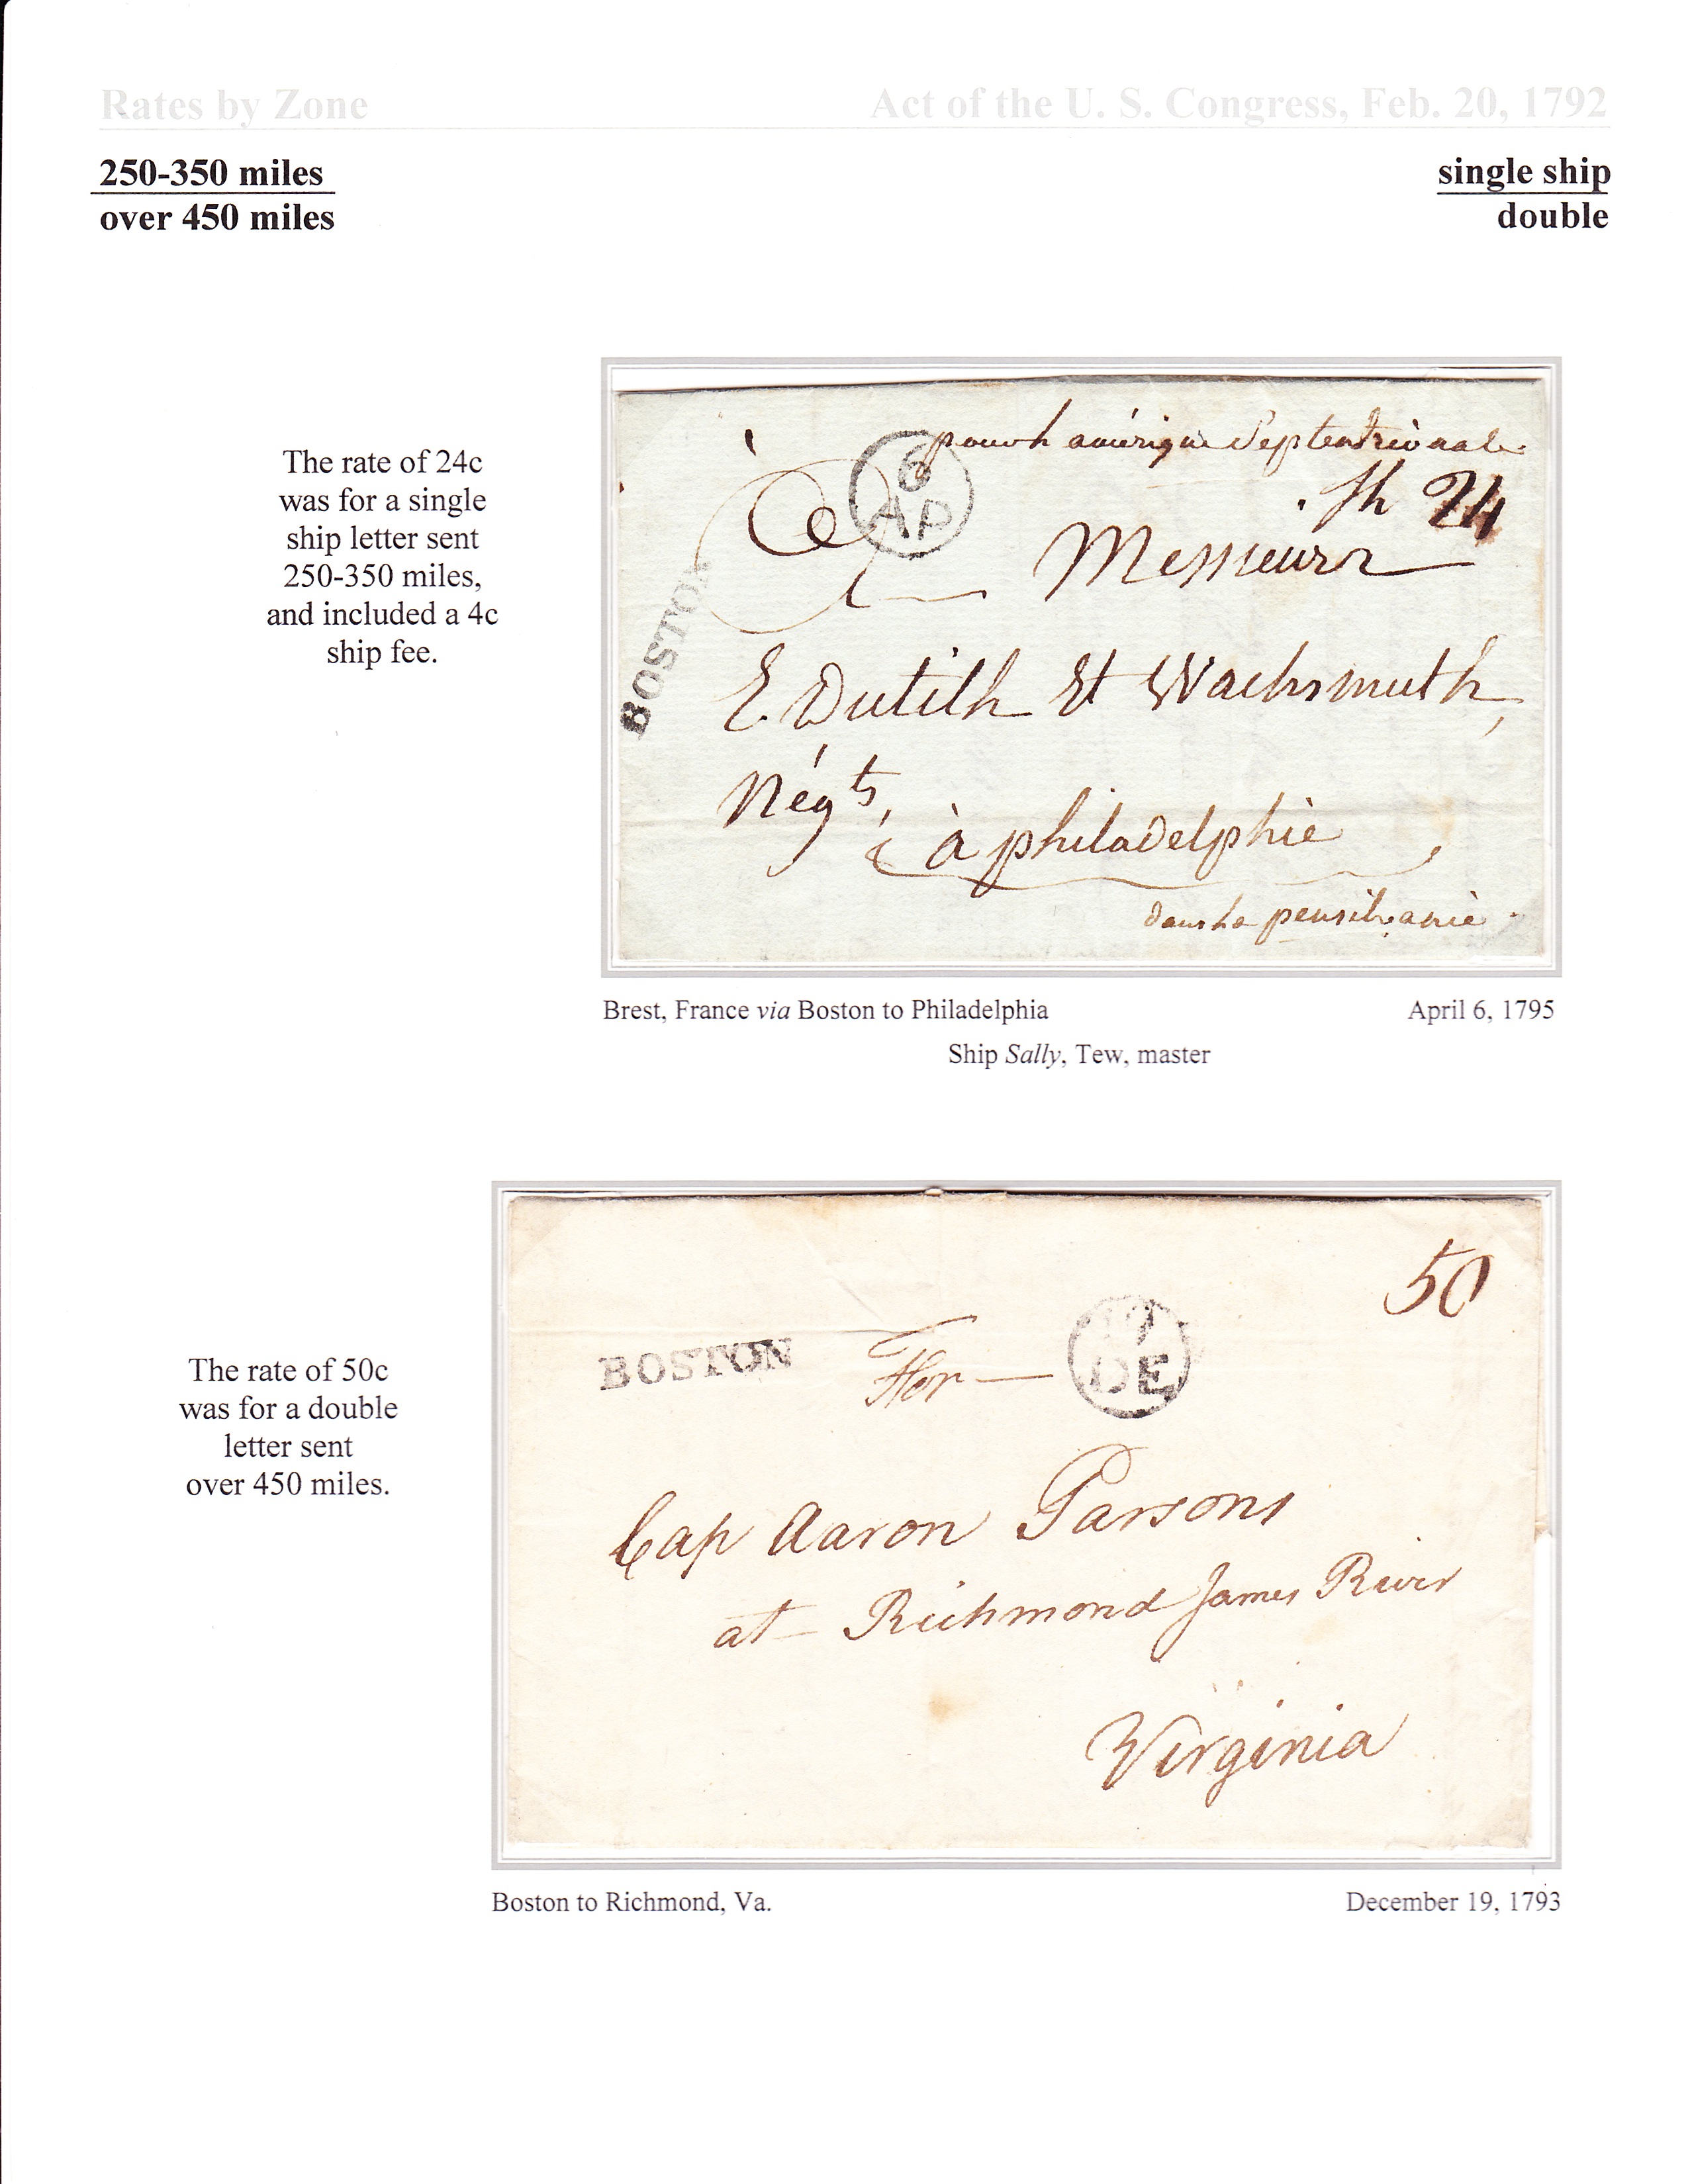 Rates by Zone
Act of the U. S. Congress, Feb. 20, 1792
250-350 miles
over 450 miles
single ship
double
The rate of 24c
was for a single
ship letter sent
250-350 miles,
and included a 4c
ship fee.
6
AP
amérique Septentrionale
Sh 24
BOSTON
Messieurs
E. Dutilh Et Wachsmuth,
Négts,
à philadelphie
dans la pensilvanie
Brest, France via Boston to Philadelphia
April 6, 1795
Ship Sally, Tew, master
The rate of 50c
was for a double
letter sent
over 450 miles.
50
BOSTON
For
DE
Cap Aaron Parsons
at Richmond James River
Virginia
Boston to Richmond, Va.
December 19, 1793